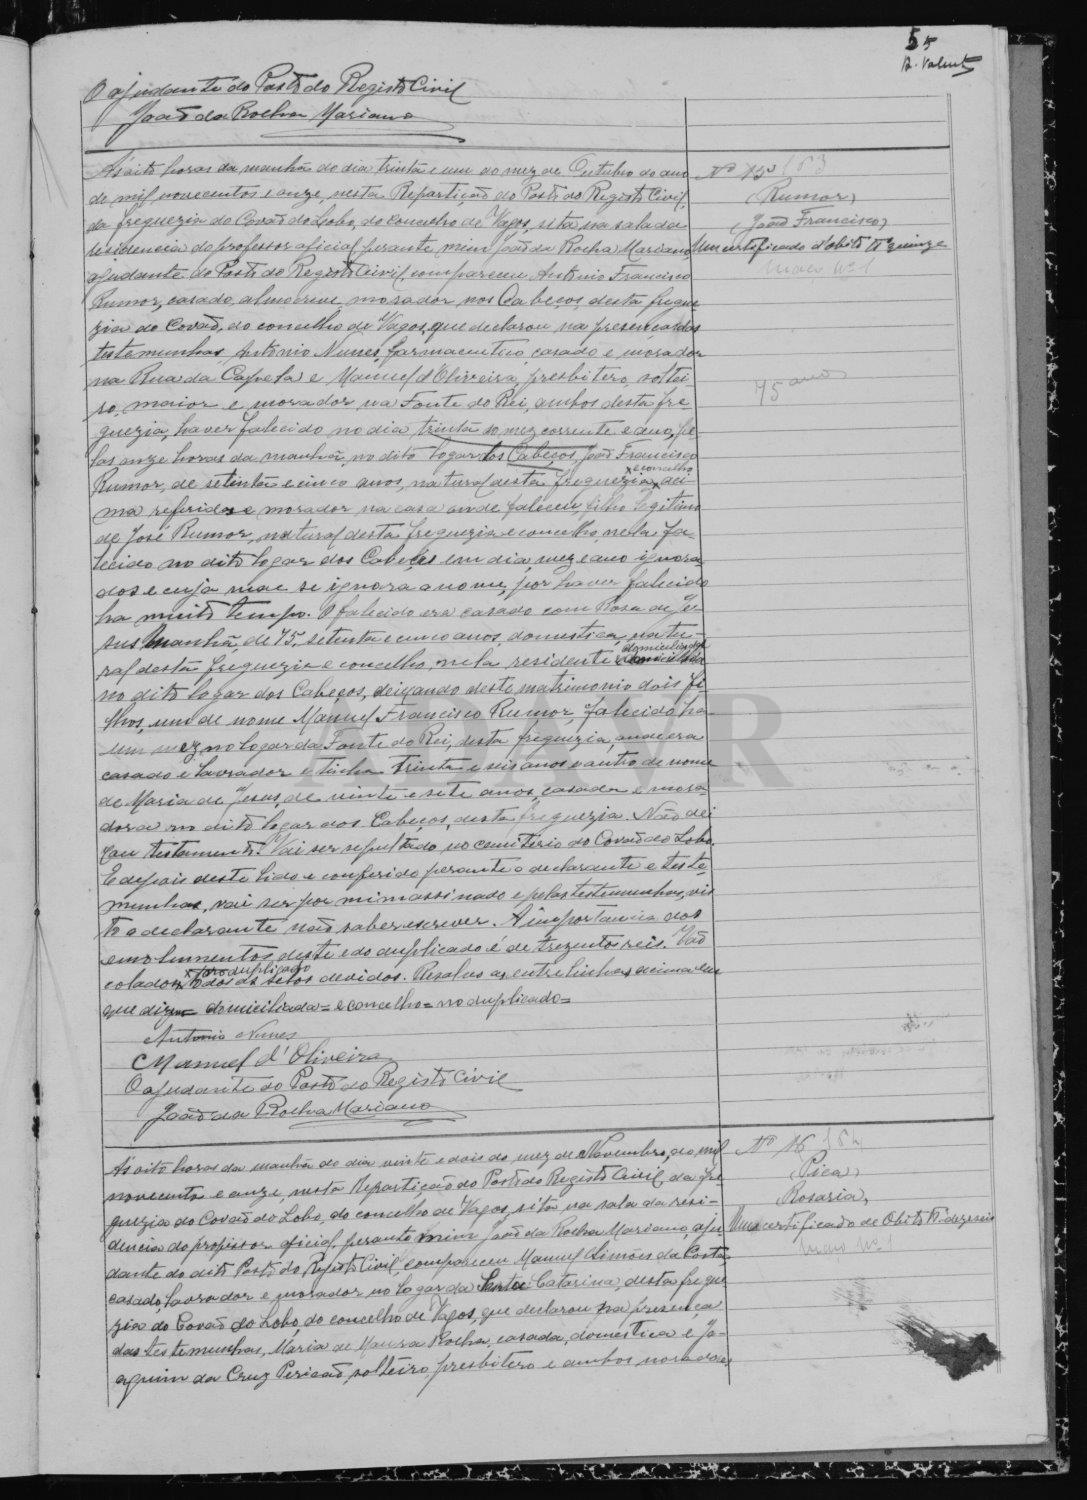 55
O ajudante do Posto do Registo Civil
João da Rocha Mariano
Nº 15
(Rumor)
(João Francisco)
Um certificado d'obito Nº quinze
75 anos
Ás oito horas da manhã do dia trinta e um do mez de Outubro do an
de mil novecentos e onze, nesta Repartição do Posto do Registo Civil,
da freguezia do Covão do Lobo, do concelho de Vagos, sita na sala da
residencia do professor oficial, perante mim João da Rocha Mariano
ajudante do Posto do Registo Civil, compareceu Antonio Francisco
Rumor, casado, almocreve, morador nos Cabeços, desta fregue
zia do Covão, do concelho de Vagos, que declarou na presença das
testemunhas, Antonio Nunes, farmaceutico, casado e morador
na Rua da Capela e Manuel d'Oliveira, presbitero, soltei
ro, maior e morador na Fonte do Rei, ambos desta fre
guezia, haver falecido no dia trinta do mez corrente e ano, pe
las onze horas da manhã, no dito logar dos Cabeços, João Francisco
Rumor, de setenta e cinco anos, natural desta freguezia e concelho aci-
ma referidos e morador na casa onde faleceu, filho legitimo
de José Rumor, natural desta freguezia e concelho, nela fa
lecido no dito logar dos Cabeços em dia, mez e ano ignora
dos e cuja mae se ignora o nome, por haver falecido
ha muito tempo. O falecido era casado com Rosa de Je
sus Manhã, de 75, setenta e cinco anos, domestica, natu-
ral desta freguezia e concelho, nela residente e domiciliada
no dito logar dos Cabeços, deixando deste matrimonio dois fi
lhos, um de nome Manuel Francisco Rumor, falecido ha
um mez, no logar da Fonte do Rei, desta freguezia, onde era
casado e lavrador e tinha trinta e seis anos e outro de nome
de Maria de Jesus, de vinte e sete anos, casada e mora-
dora no dito logar dos Cabeços, desta freguezia. Não dei
xou testamento. Vai ser sepultado no cemiterio do Covão do Lobo.
E depois deste lido e conferido perante o declarante e teste
munhas, vai ser por mim assinado e pelas testemunhas, vis
to o declarante não saber escrever. A importancia dos
emolumentos deste e do duplicado é de trezentos reis. Vão
colados no duplicado todos os selos devidos. Resalvo as entrelinhas acima em
que digo = domiciliada = e concelho = no duplicado =
Antonio Nunes
Manuel d'Oliveira
O ajudante do Posto do Registo Civil
João da Rocha Mariano
Nº 16
(Pica)
Rosaria,
Um certificado de Obito Nº dezeseis
Ás oito horas da manhã do dia vinte e dois do mez de Novembro, de mil
novecentos e onze, nesta Repartição do Posto do Registo Civil, da fre-
guezia do Covão do Lobo, do concelho de Vagos, sita na sala da resi-
dencia do professor oficial, perante mim João da Rocha Mariano, aju
dante do dito Posto do Registo Civil, compareceu Manuel Simões da Costa,
casado, lavrador e morador no logar da Santa Catarina, desta fregue
zia do Covão do Lobo, do concelho de Vagos, que declarou na presença
das testemunhas, Maria de Moura Rocha, casada, domestica e Jo-
aquim da Cruz Pericão, solteiro, presbitero e ambos moradores